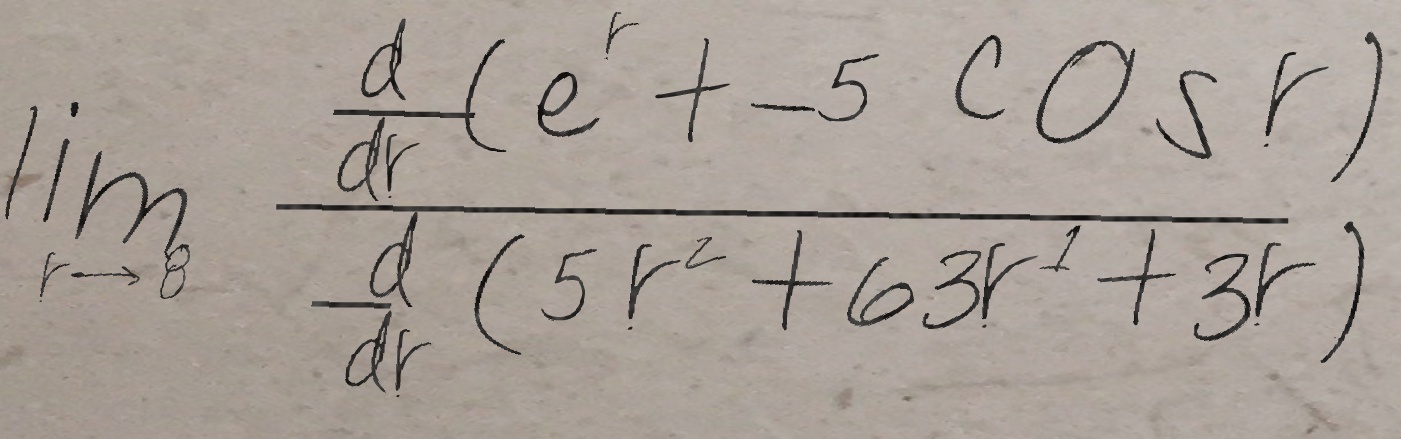 \lim_{r \to 8} \frac{\frac{d}{dr}(e^r + -5 \cos r)}{\frac{d}{dr}(5r^2 + 63r^1 + 3r)}